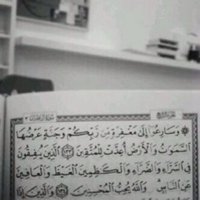 ۞ وَسَارِعُوٓا۟ إِلَىٰ مَغْفِرَةٍ مِّن رَّبِّكُمْ وَجَنَّةٍ عَرْضُهَا
ٱلسَّمَٰوَٰتُ وَٱلْأَرْضُ أُعِدَّتْ لِلْمُتَّقِينَ ١٣٣ ٱلَّذِينَ يُنفِقُونَ
فِى ٱلسَّرَّآءِ وَٱلضَّرَّآءِ وَٱلْكَٰظِمِينَ ٱلْغَيْظَ وَٱلْعَافِينَ
عَنِ ٱلنَّاسِ وَٱللَّهُ يُحِبُّ ٱلْمُحْسِنِينَ ١٣٤ وَٱلَّذِينَ إِذَا